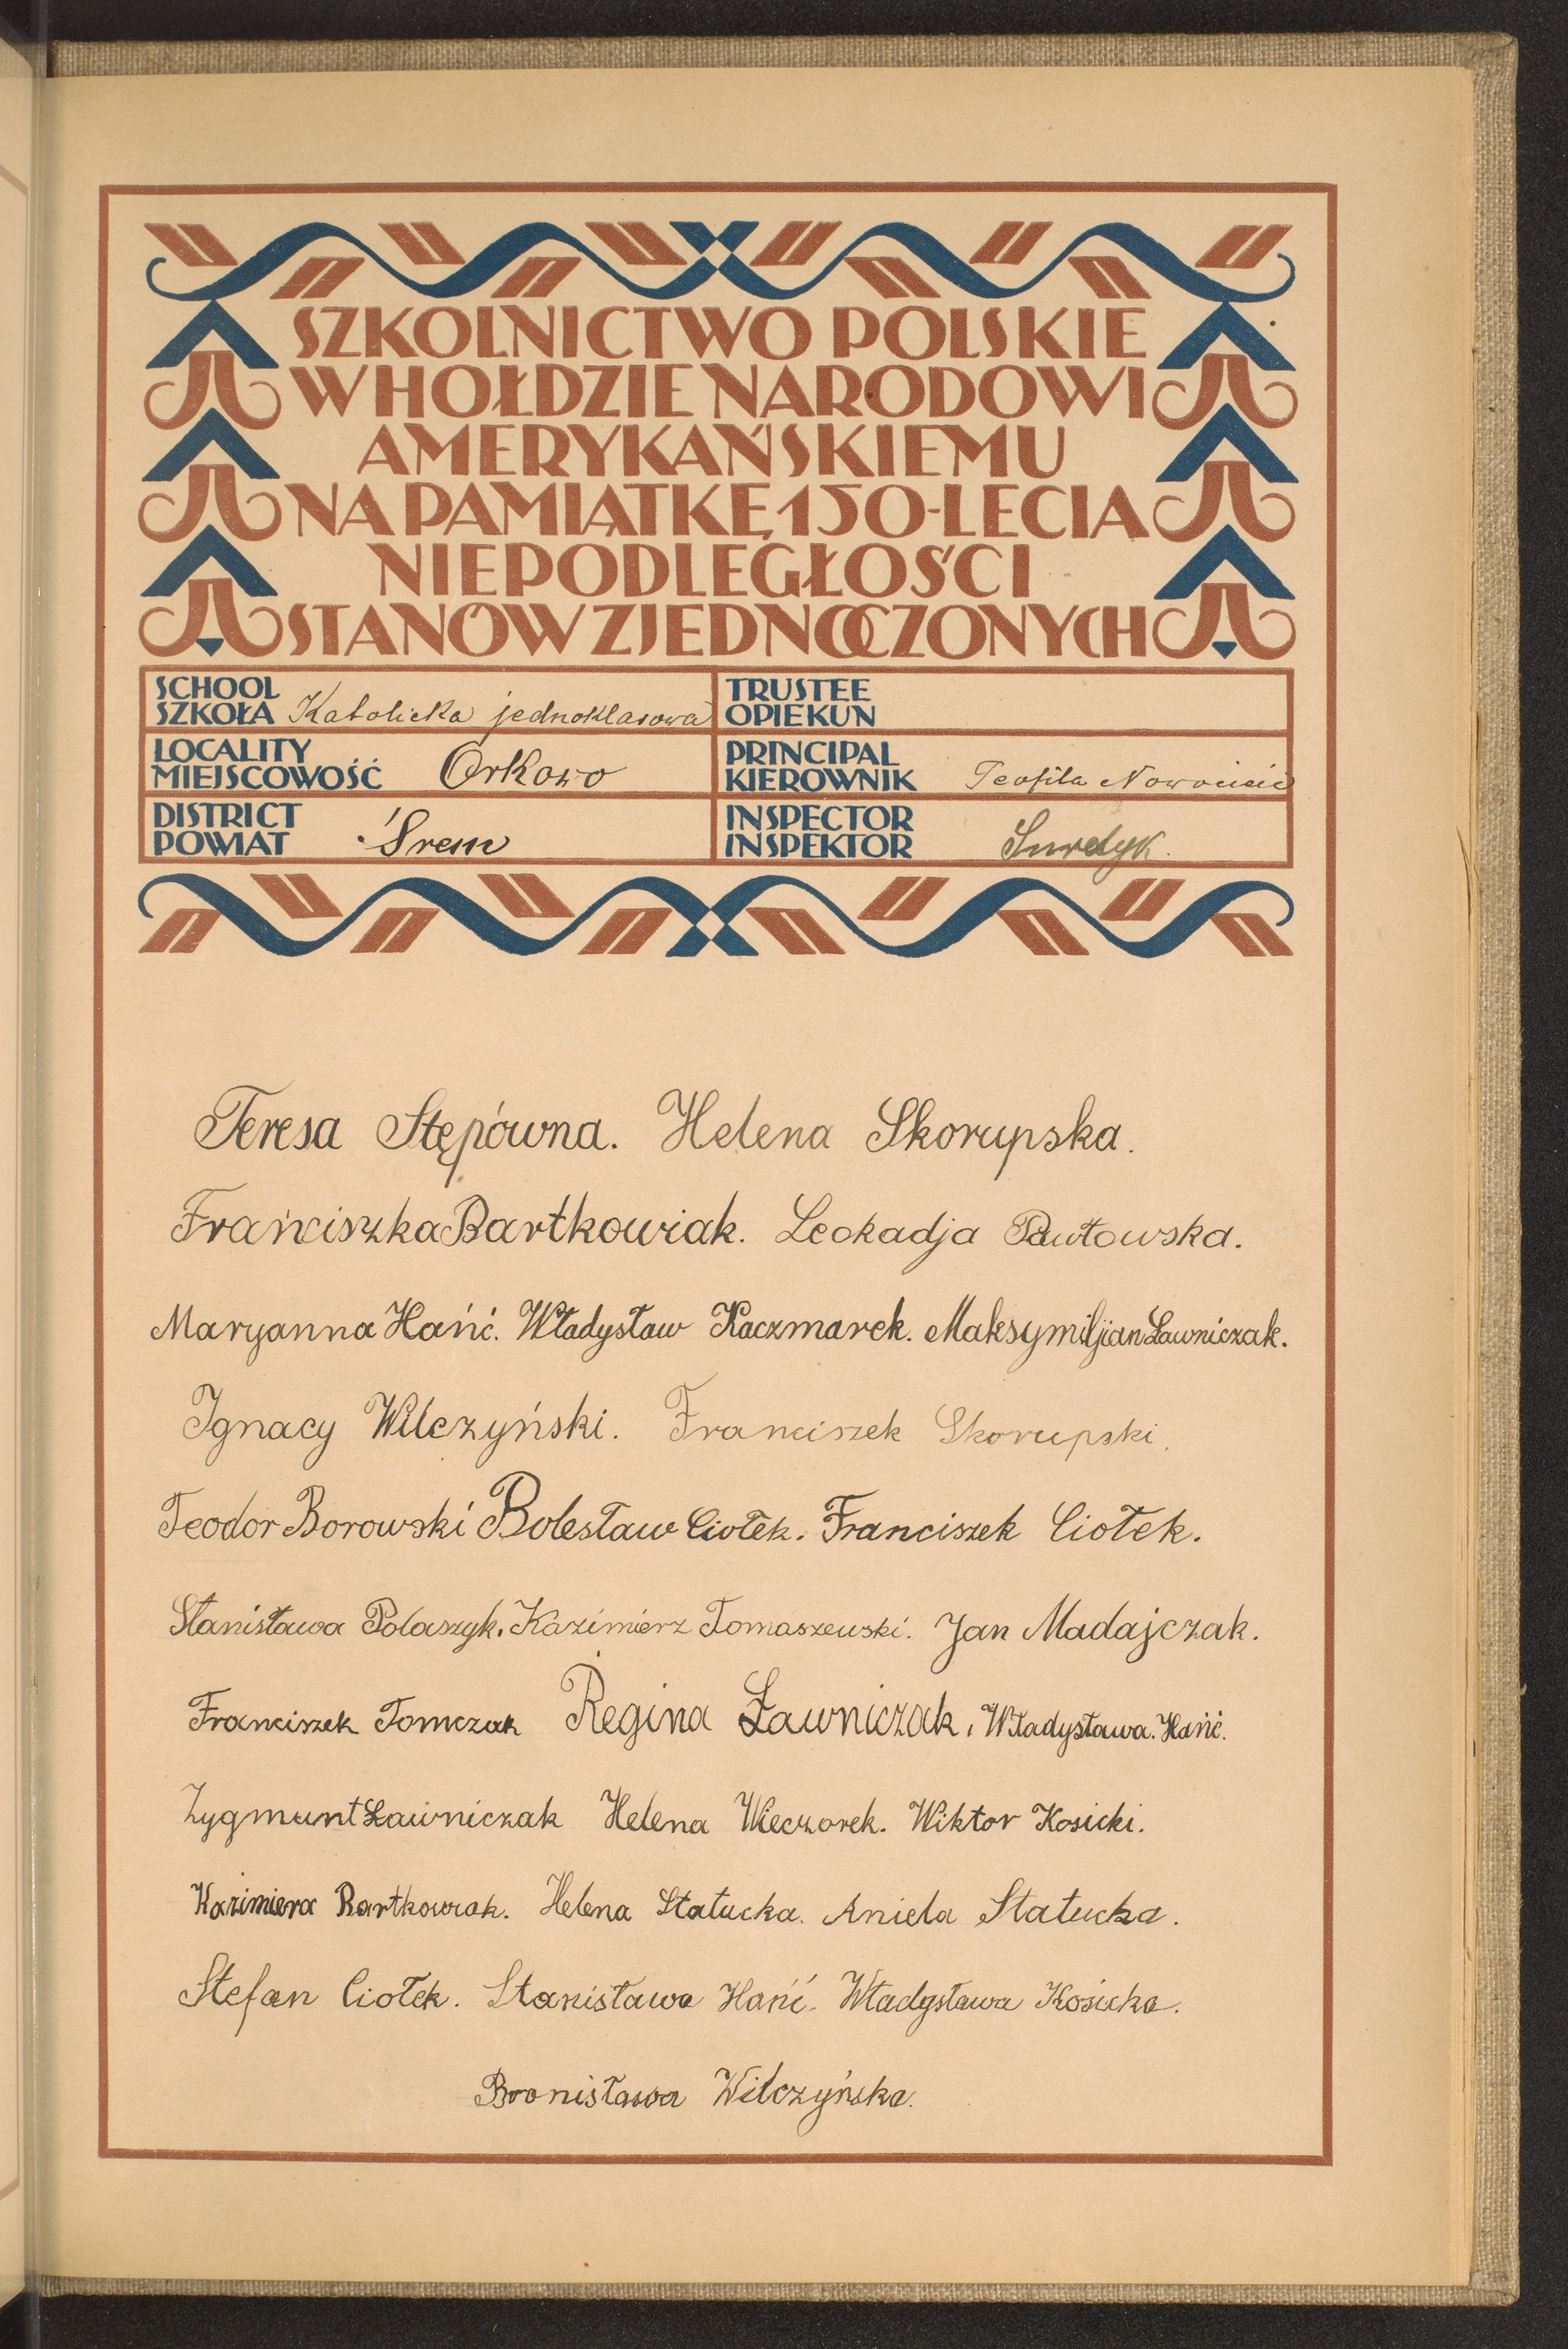 SZKOLNICTWO POLSKIE
W HOŁDZIE NARODOWI
AMERYKAŃSKIEMU
NA PAMIĄTKĘ 150-LECIA
NIEPODLEGŁOŚCI
STANÓW ZJEDNOCZONYCH
SCHOOL
SZKOŁA Katolicka jednoklasowa
TRUSTEE
OPIEKUN
LOCALITY
MIEJSCOWOŚĆ Orkowo
PRINCIPAL
KIEROWNIK Teofila
DISTRICT
POWIAT Śrem
INSPECTOR
INSPEKTOR
Teresa Stępówna. Helena Skorupska.
Franciszka Bartkowiak. Leokadja Pawłowska.
Maryanna Hańć. Władysław Kaczmarek. Maksymiljian Ławniczak.
Ignacy Wilczyński. Franciszek Skorupski.
Teodor Borowski Bolesław Ciołek. Franciszek Ciołek.
Stanisława Polaszyk. Kazimierz Tomaszewski. Jan Madajczak.
Franciszek Tomczak Regina Ławniczak. Władysława. Hańć.
Zygmunt Ławniczak Helena Wieczorek. Wiktor Kosicki.
Kazimiera Bartkowiak. Helena Statucka. Aniela Statucka.
Stefan Ciołek. Stanisława Hańć. Władysława Kosicka.
Bronisława Wilczyńska.